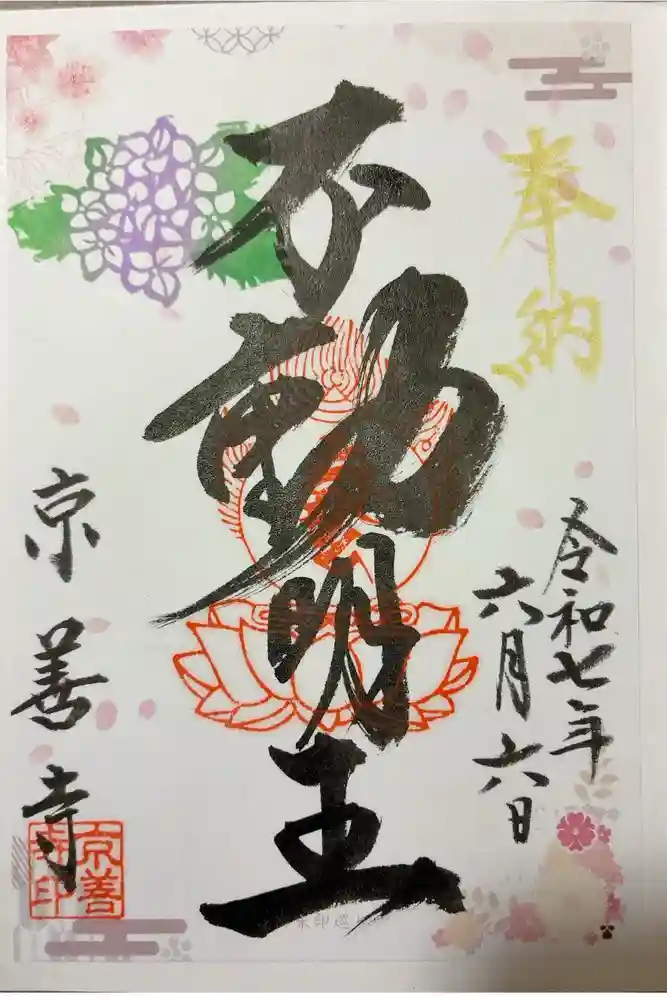 奉納
令和七年
六月六日
不動明王
京善寺
京善寺印